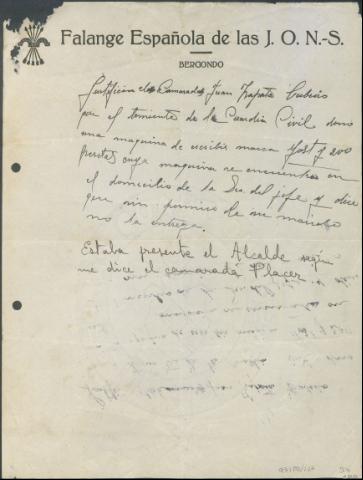 Falange Española de las J. O. N.-S.
BERGONDO
Justifica el Camarada Juan Zapata
que el teniente de la Guardia Civil dono
una maquina de escribir marca Yost y 200
pesetas cuya maquina se encuentra en
el domicilio de la Sra del jefe y dice
que sin permiso de su marido
no la entrega.
Estaba presente el Alcalde según
me dice el camarada Placer